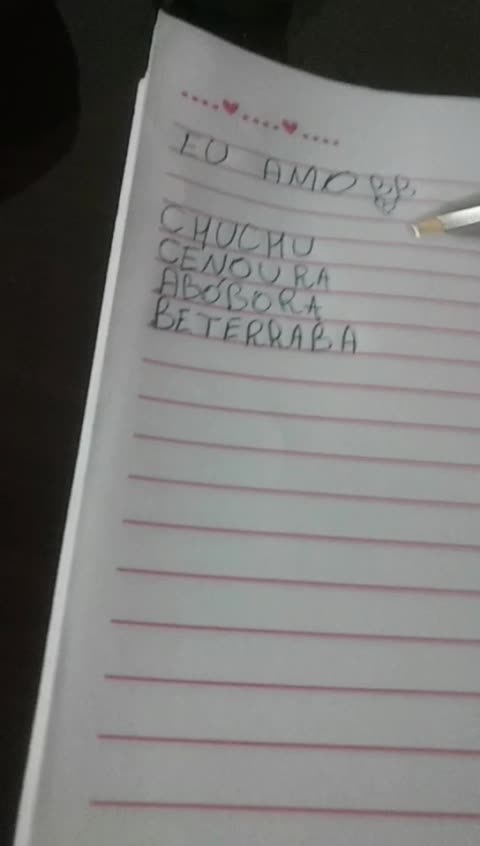 EU AMO
CHUCHU
CENOURA
ABÓBORA
BETERRABA